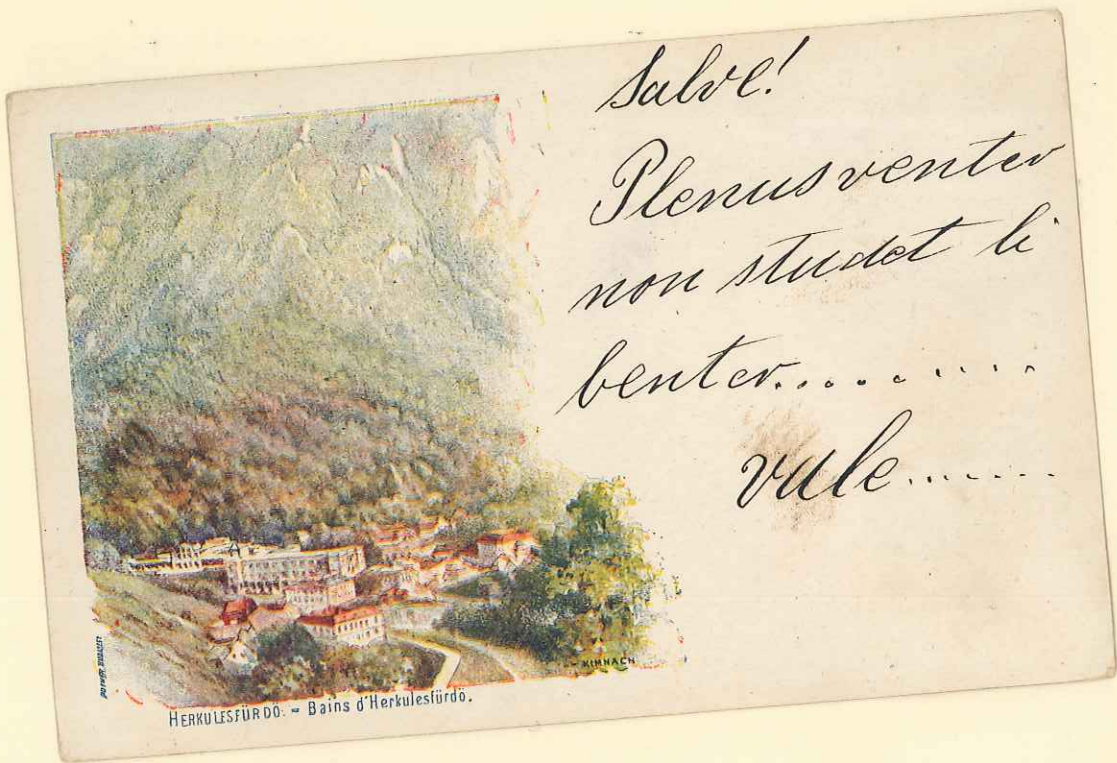 Salve!
Plenus venter
non studet li
benter..........
vale.......
KIMNACH
HERKULESFÜRDŐ. = Bains d'Herkulesfürdő.